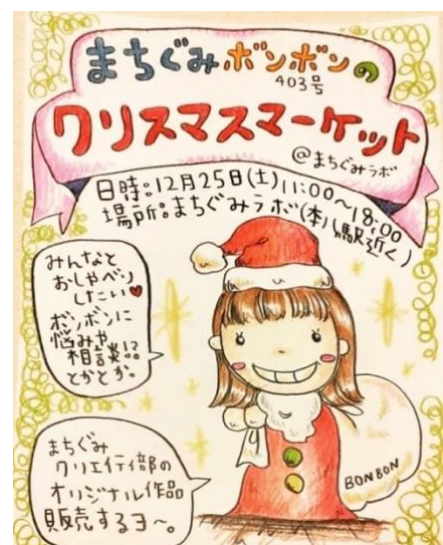 まちぐみボンボンの
403号
クリスマスマーケット
@まちぐみラボ
日時:12月25日(土)11:00〜18:00
場所:まちぐみラボ(本八駅近く)
みんなと
おしゃべり
したい♥
ボンボンに
悩みや
相談!?
とかとか。
まちぐみ
クリエイティ部の
オリジナル作品
販売するヨ〜。
BONBON